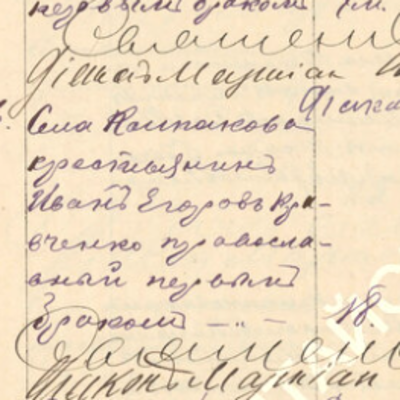 первымъ бракомъ
Священ
Діаконъ Мартіан
Діако
Села Колпакова
крестьянинъ
Иванъ Егоровъ Кра-
вченко правосла-
вный первымъ
бракомъ — „ — 18.
Священ
Діаконъ Мартіан